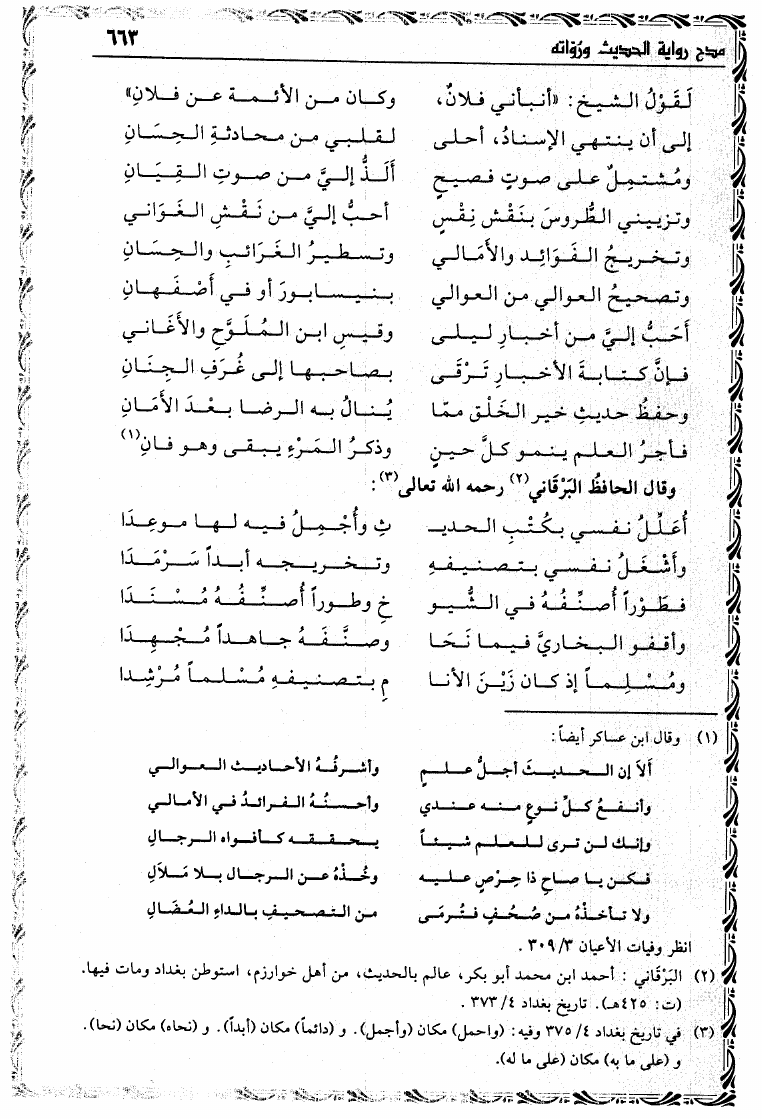 مدح رواية الحديث ورُوَاته ٦٦٣
لَقَوْلُ الشيخ: «أنبأني فلانٌ، وكان من الأئمة عن فلانِ»
إلى أن ينتهي الإسنادُ، أحلى لقلبي من محادثةِ الحِسَانِ
ومُشتملٌ على صوتٍ فصيحٍ أَلَذُّ إليَّ من صوتِ القِيَانِ
وتزييني الطُّروسَ بنَقْش نِقْسٍ أحبُّ إليَّ من نَقْشِ الغَوَاني
وتخريجُ الفَوَائِد والأمَالي وتسطيرُ الغَرَائبِ والحِسَانِ
وتصحيحُ العوالي من العوالي بنيسابورَ أو في أصْفَهانِ
أَحَبُّ إليَّ من أخبارِ ليلى وقيسِ ابن المُلَوَّحِ والأغَاني
فإنَّ كتابةَ الأخبارِ تَرْقَى بصاحبها إلى غُرَفِ الجِنَانِ
وحفظُ حديثِ خير الخَلْق ممّا يُنالُ به الرضا بعْدَ الأمَانِ
فأجرُ العلم ينمو كلَّ حينٍ وذكرُ المَرْءِ يبقى وهو فانِ(١)
وقال الحافظُ البَرْقَاني(٢) رحمه الله تعالى(٣):
أُعَلِّلُ نفسي بكُتْبِ الحديـ ثِ وأُجْمِلُ فيه لها موعِدَا
وأَشْغَلُ نفسي بتصنيفهِ وتخريجه أبداً سَرْمَدَا
فطَوْراً أُصنِّفُهُ في الشُّيو خِ وطوراً أُصنِّفُهُ مُسْنَدَا
وأقفو البخاريَّ فيما نَحَا وصنَّفَهُ جاهداً مُجْهِدَا
ومُسْلِماً إذ كان زَيْنَ الأنا مِ بتصنيفهِ مُسْلماً مُرْشِدا
(١) وقال ابن عساكر أيضاً:
ألاَ إن الحديثَ أجلُّ علمٍ وأشرفُهُ الأحاديث العوالي
وأنفعُ كلِّ نوعٍ منه عندي وأحسنُهُ الفرائدُ في الأمالي
وإنك لن ترى للعلم شيئاً يحققه كأفواه الرجالِ
فكن يا صاحِ ذا حِرْصٍ عليه وخُذْهُ عن الرجال بلا مَلاَلِ
ولا تأخذْهُ من صُحُفٍ فتُرمَى من التصحيفِ بالداءِ العُضَالِ
انظر وفيات الأعيان ٣/ ٣٠٩ .
(٢) البَرْقَاني : أحمد ابن محمد أبو بكر، عالم بالحديث، من أهل خوارزم، استوطن بغداد ومات فيها.
(ت: ٤٢٥هـ). تاريخ بغداد ٤/ ٣٧٣ .
(٣) في تاريخ بغداد ٤/ ٣٧٥ وفيه: (واحمل) مكان (وأجمل). و (دائماً) مكان (أبداً). و (نحاه) مكان (نحا).
و (على ما به) مكان (على ما له).